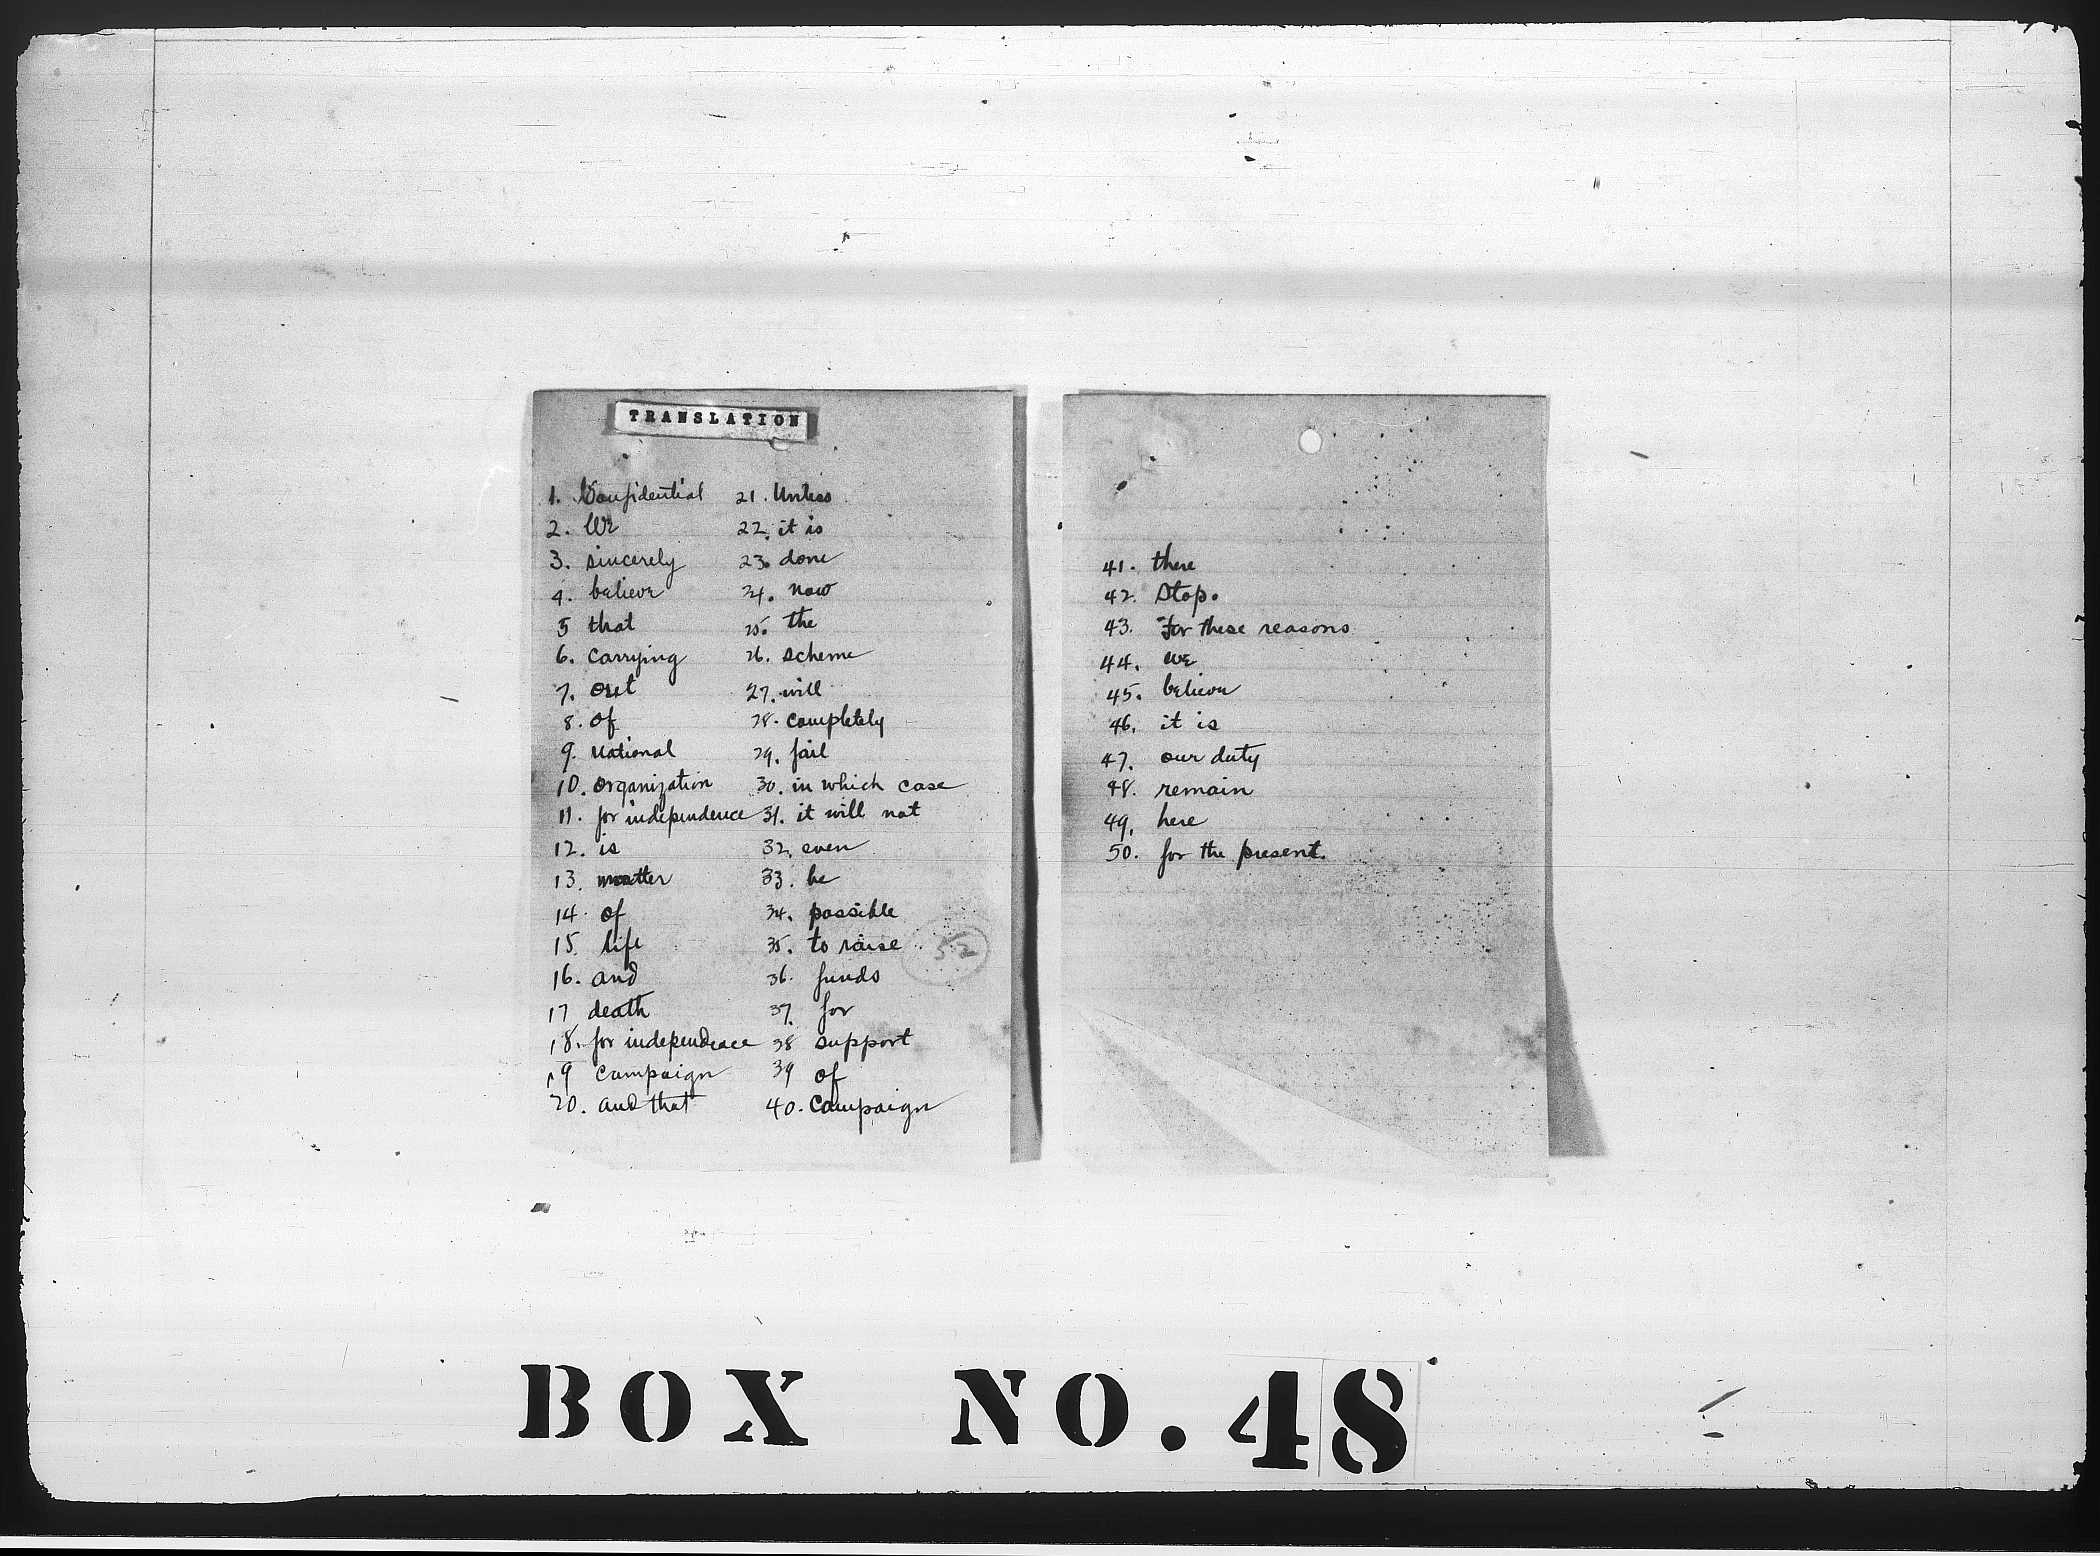 TRANSLATION
1. Confidential
2. We
3. sincerely
4. believe
5 that
6. carrying
7. out
8. of
9. national
10. organization
11. for independence
12. is
13. matter
14. of
15. life
16. and
17 death
18. for independence
19 campaign
20. and that
21. Unless
22. it is
23. done
24. now
25. the
26. scheme
27. will
28. completely
29. fail
30. in which case
31. it will not
32. even
33. be
34. possible
35. to raise
36. funds
37. for
38 support
39 of
40. campaign
52
41. there
42. Stop.
43. For these reasons
44. we
45. believe
46. it is
47. our duty
48. remain
49. here
50. for the present.
BOX NO. 48